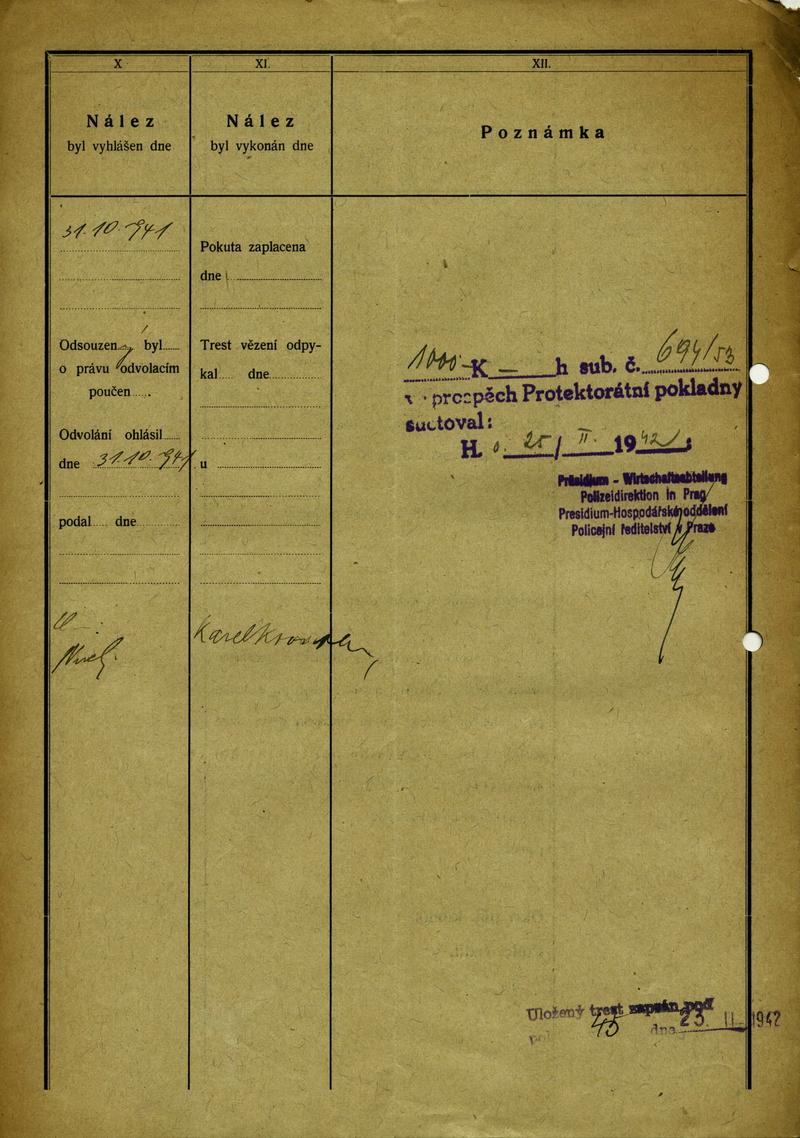 X
Nález
byl vyhlášen dne
31.10.941
Odsouzen byl
o právu odvolacím
poučen
Odvolání ohlásil
dne 31.10.941
podal dne
XI.
Nález
byl vykonán dne
Pokuta zaplacena
dne
Trest vězení odpy-
kal dne
u
Karel
XII.
Poznámka
1000 K — h sub. č. 694/53
prospěch Protektorátní pokladny
súčtoval:
H. 25/II. 1942
Präsidium - Wirtschaftsabteilung
Polizeidirektion in Prag
Presidium-Hospodářské oddělení
Policejní ředitelství v Praze
Uložený trest zapsán pod
45 dne 23. II. 1942